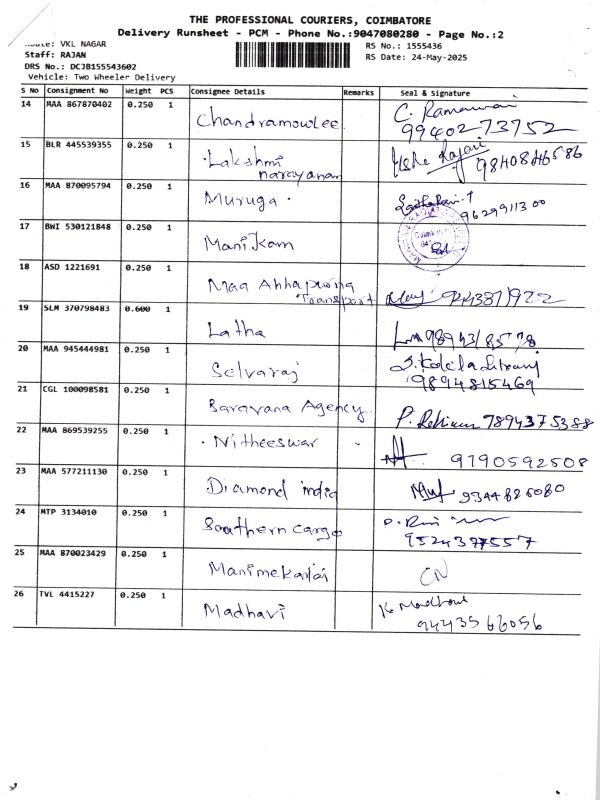 THE PROFESSIONAL COURIERS, COIMBATORE
Delivery Runsheet - PCM - Phone No.:9047080280 - Page No.:2
Route: VKL NAGAR
RS No.: 1555436
Staff: RAJAN
RS Date: 24-May-2025
DRS No.: DCJB155543602
Vehicle: Two Wheeler Delivery
S No Consignment No Weight PCS Consignee Details Remarks Seal & Signature
14 MAA 867870402 0.250 1 Chandramowlee C. Ramamani
9940273752
15 BLR 445539355 0.250 1 Lakshmi narayanan Rajari 9840846586
16 MAA 870095794 0.250 1 Muruga 9629911300
17 BWI 530121848 0.250 1 ManiKam
18 ASD 1221691 0.250 1 Maa Annapurna Transport 9443871922
19 SLM 370798483 0.600 1 Latha 9894318578
20 MAA 945444981 0.250 1 Selvaraj
9894815469
21 CGL 100098581 0.250 1 Saravana Agency P. 7894375388
22 MAA 869539255 0.250 1 Nitheeswar 9790592508
23 MAA 577211130 0.250 1 Diamond india 9344826080
24 MTP 3134010 0.250 1 Southern cargo
9524397557
25 MAA 870023429 0.250 1 Manimekalai CN
26 TVL 4415227 0.250 1 Madhavi K Madhavi
9443566056